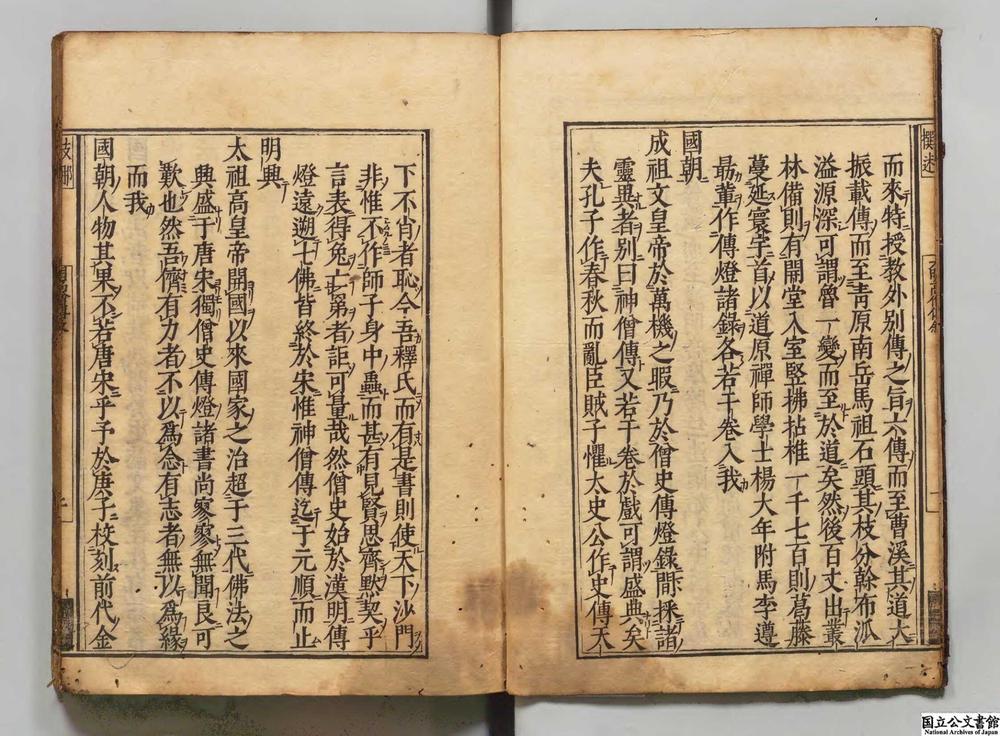 而來特授教外別傳之旨六傳而至曹溪其道大
振載傳而至青原南岳馬祖石頭其枝分幹布泒
溢源深可謂魯一變而至於道矣然後百丈出叢
林備則有開堂入室竪拂拈椎一千七百則葛藤
蔓延寰宇首以道原禪師學士楊大年附馬李遵
勗輩作傳燈諸錄各若干卷入我
國朝
成祖文皇帝於萬機之暇乃於僧史傳燈錄間採諸
靈異者別曰神僧傳又若干卷於戲可謂盛典矣
夫孔子作春秋而亂臣賊子懼太史公作史傳天
下不肖者恥今吾釋氏而有是書則使天下沙門
非惟不作師子身中蟲而甚有見賢思齊默契乎
言表得兔亡䇶者詎可量哉然僧史始於漢明傳
燈遠遡七佛皆終於宋惟神僧傳迄于元順而止
明興
太祖高皇帝開國以來國家之治超于三代佛法之
興盛于唐宋獨僧史傳燈諸書尚寥寥無聞良可
歎也然吾儕有力者不以為念有志者無以為緣
而我
國朝人物其果不若唐宋乎予於庚子校刻前代金
国立公文書館
National Archives of Japan